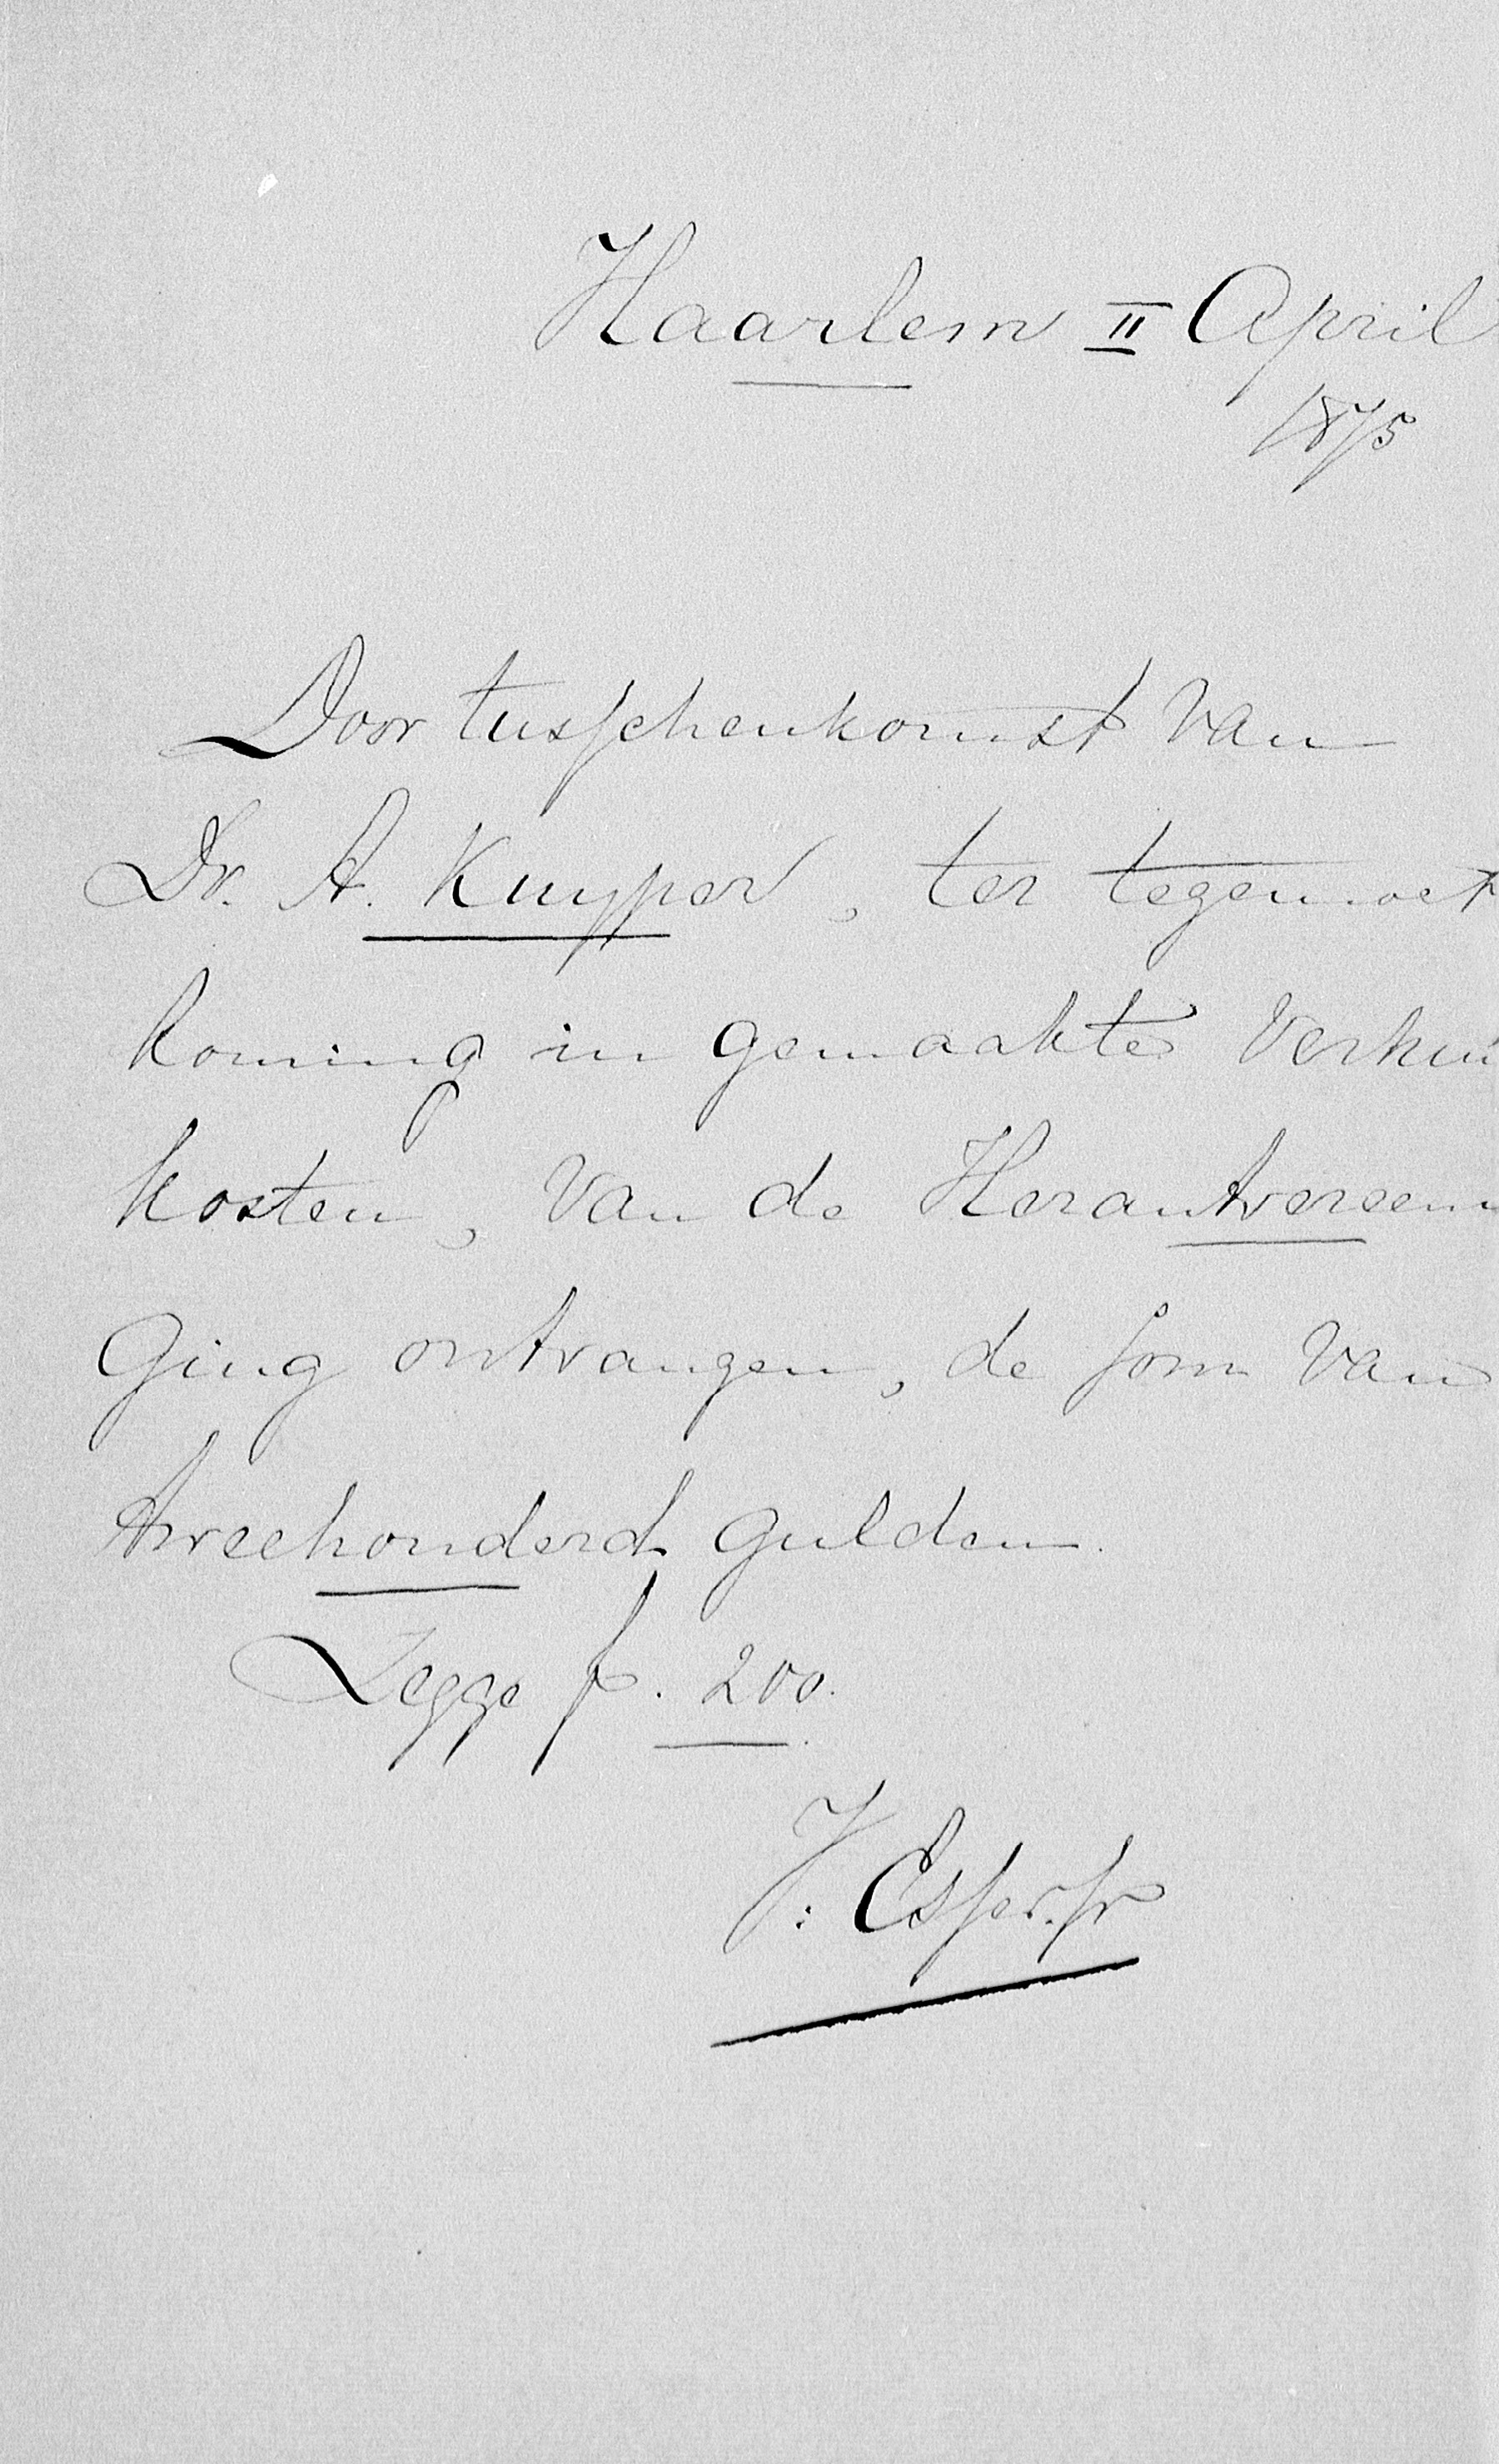 Haarlem II April
1875
Door tusschenkomst van
Dr. A. Kuyper, ter tegemoet
koming in gemaakte verhui
kosten, van de Herautvereeni
ging ontvangen, de som van
tweehonderd gulden.
Zegge f. 200.
J: Esser. Jr